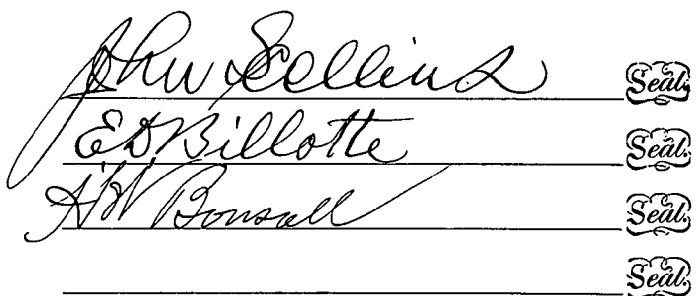 John Scollins Seal.
E D Billotte Seal.
H W Bonsall Seal.
Seal.